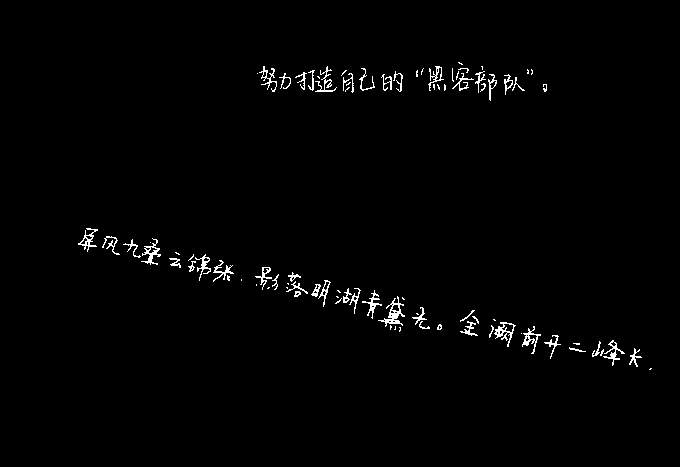 努力打造自己的“黑客部队”。
屏风九叠云锦张.影落明湖青黛光。金阙前开二峰长.